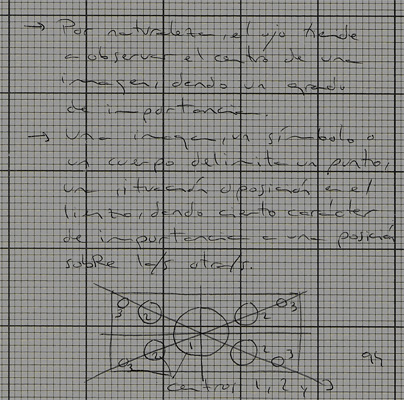 → Por naturaleza, el ojo tiende
a observar el centro de una
imagen, dando un grado
de importancia.
→ Una imagen, un símbolo o
un cuerpo delimita un punto,
una situación o posición en el
lienzo, dando cierto carácter
de importancia a una posición
sobre la/s otra/s.
3 2 2 3
1
3 2 2 3
94
centro, 1, 2 y 3